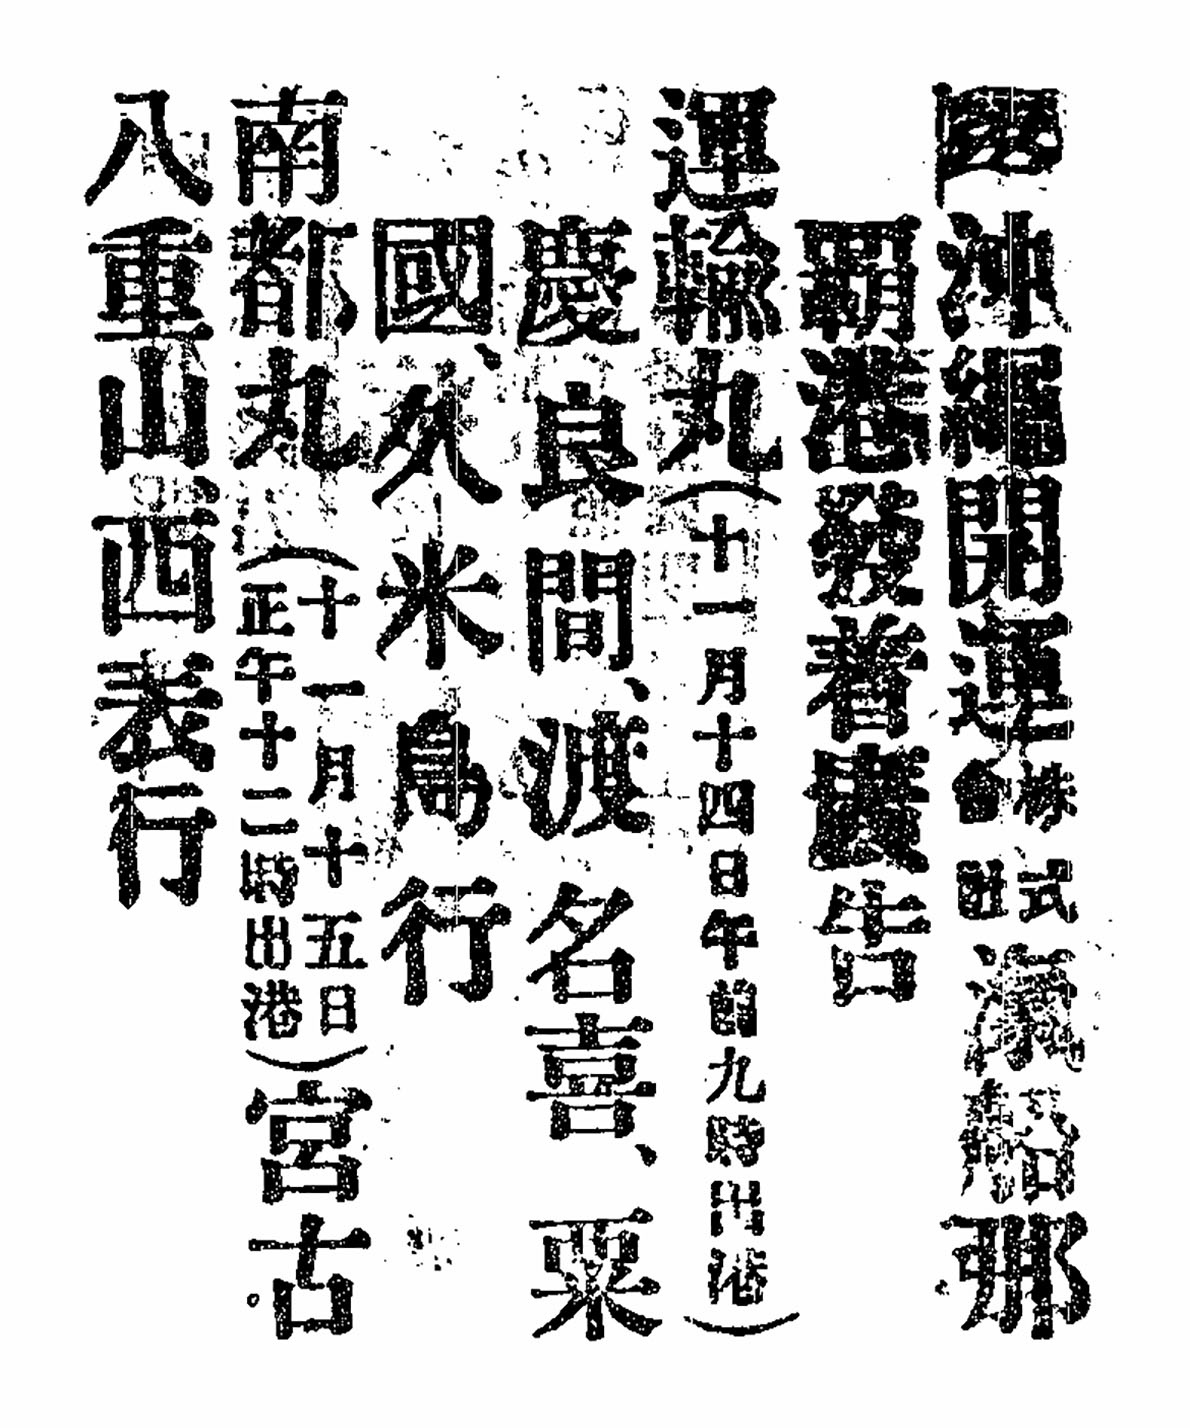 沖繩開運株式會社滊船那
覇港發着廣告
運輸丸(十一月十四日午前九時出港)
慶良間、渡名喜、粟
國、久米島行
南都丸(十一月十五日正午十二時出港)宮古
八重山西表行